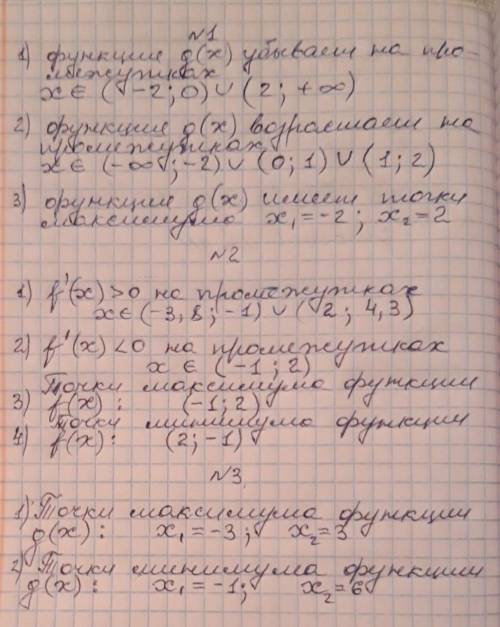 №1
1) функция g(x) убывает на про-
межутках
x ∈ (-2; 0) ∪ (2; +∞)
2) функция g(x) возрастает на
промежутках
x ∈ (-∞; -2) ∪ (0; 1) ∪ (1; 2)
3) функция g(x) имеет точки
максимума x₁ = -2; x₂ = 2
№2
1) f'(x) > 0 на промежутках
x ∈ (-3,8; -1) ∪ (2; 4,3)
2) f'(x) < 0 на промежутках
x ∈ (-1; 2)
Точки максимума функции
3) f(x): (-1; 2)
Точки минимума функции
4) f(x): (2; -1)
№3
1) Точки максимума функции
g(x): x₁ = -3; x₂ = 3
2) Точки минимума функции
g(x): x₁ = -1; x₂ = 6